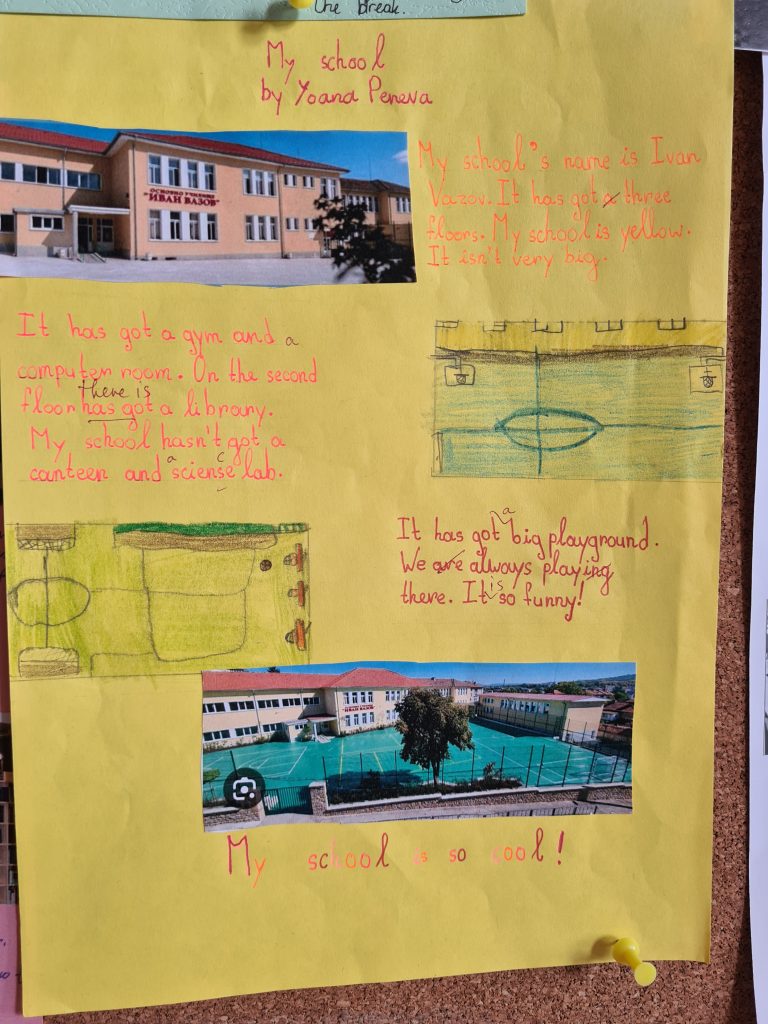 the break.
My school
by Yoana Peneva
ОСНОВНО УЧИЛИЩЕ
"ИВАН ВАЗОВ"
My school's name is Ivan
Vazov. It has got a three
floors. My school is yellow.
It isn't very big.
It has got a gym and a
computer room. On the second
there is
floor has got a library.
My school hasn't got a
canteen and a sciense lab.
c
It has got a big playground.
We are always playing
there. It is so funny!
ИВАН ВАЗОВ
My school is so cool!